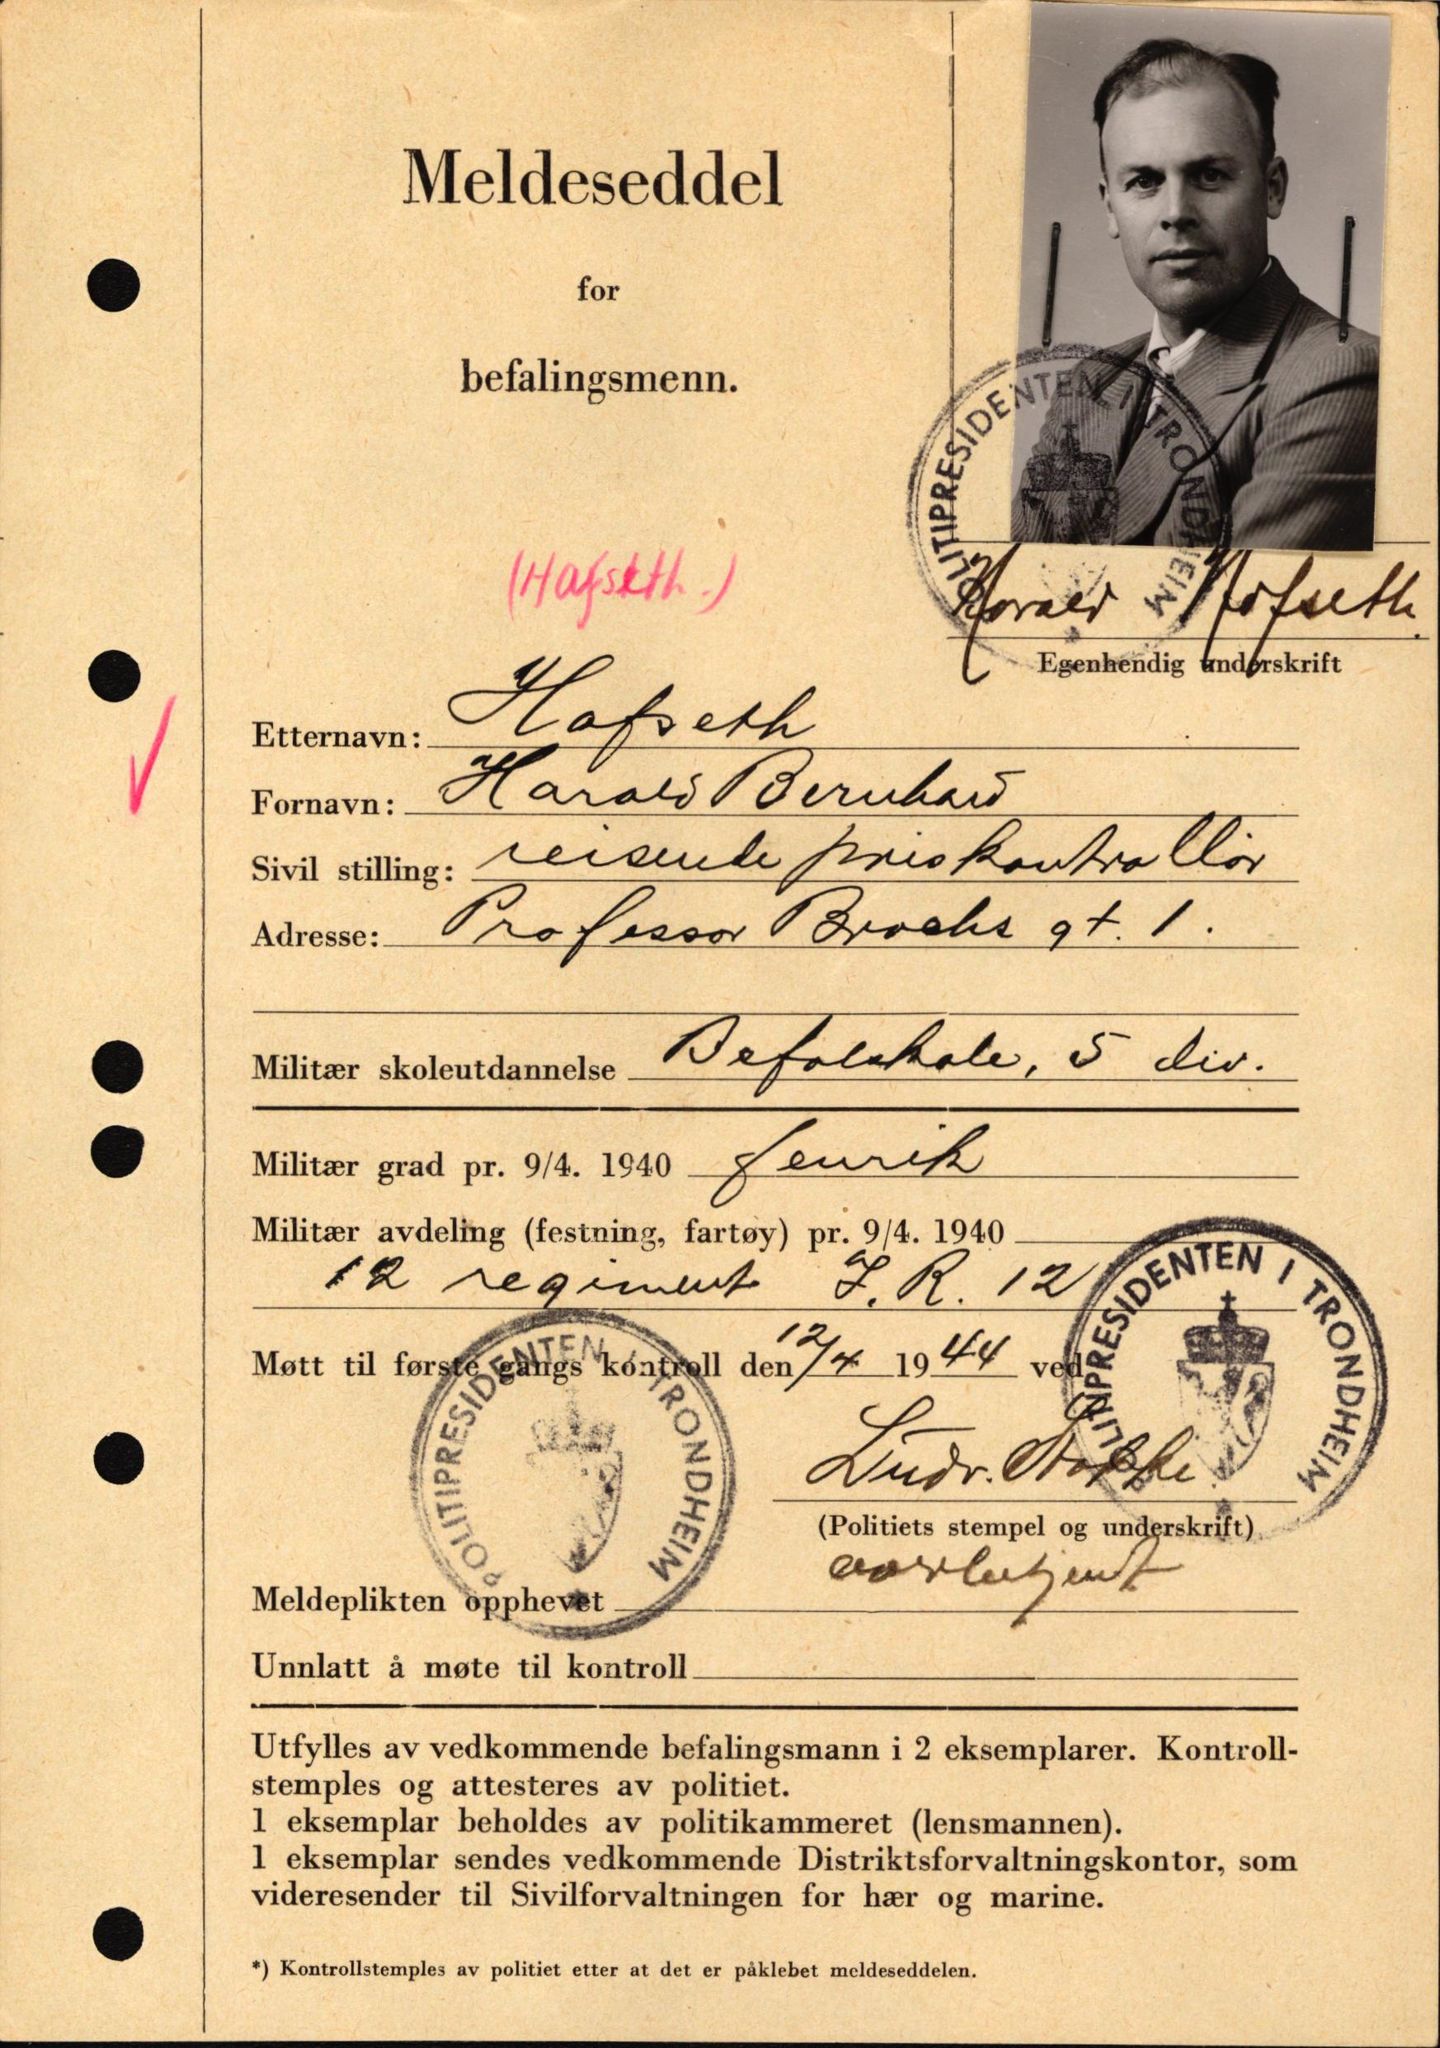 Meldeseddel
for
befalingsmenn.
POLITIPRESIDENTEN I TRONDHEIM
(Hafseth.)
Harald Hafseth.
Egenhendig underskrift
Etternavn: Hafseth
Fornavn: Harald Bernhard
Sivil stilling: reisende priskontrollør
Adresse: Professor Brochs gt. 1.
Militær skoleutdannelse Befalskole, 5 div.
Militær grad pr. 9/4. 1940 fenrik
Militær avdeling (festning, fartøy) pr. 9/4. 1940
12 regiment I.R. 12
POLITIPRESIDENTEN I TRONDHEIM
Møtt til første gangs kontroll den 12/4 1944 ved
POLITIPRESIDENTEN I TRONDHEIM
Ludv.
(Politiets stempel og underskrift)
overbetjent
Meldeplikten opphevet
Unnlatt å møte til kontroll
Utfylles av vedkommende befalingsmann i 2 eksemplarer. Kontroll-
stemples og attesteres av politiet.
1 eksemplar beholdes av politikammeret (lensmannen).
1 eksemplar sendes vedkommende Distriktsforvaltningskontor, som
videresender til Sivilforvaltningen for hær og marine.
*) Kontrollstemples av politiet etter at det er påklebet meldeseddelen.